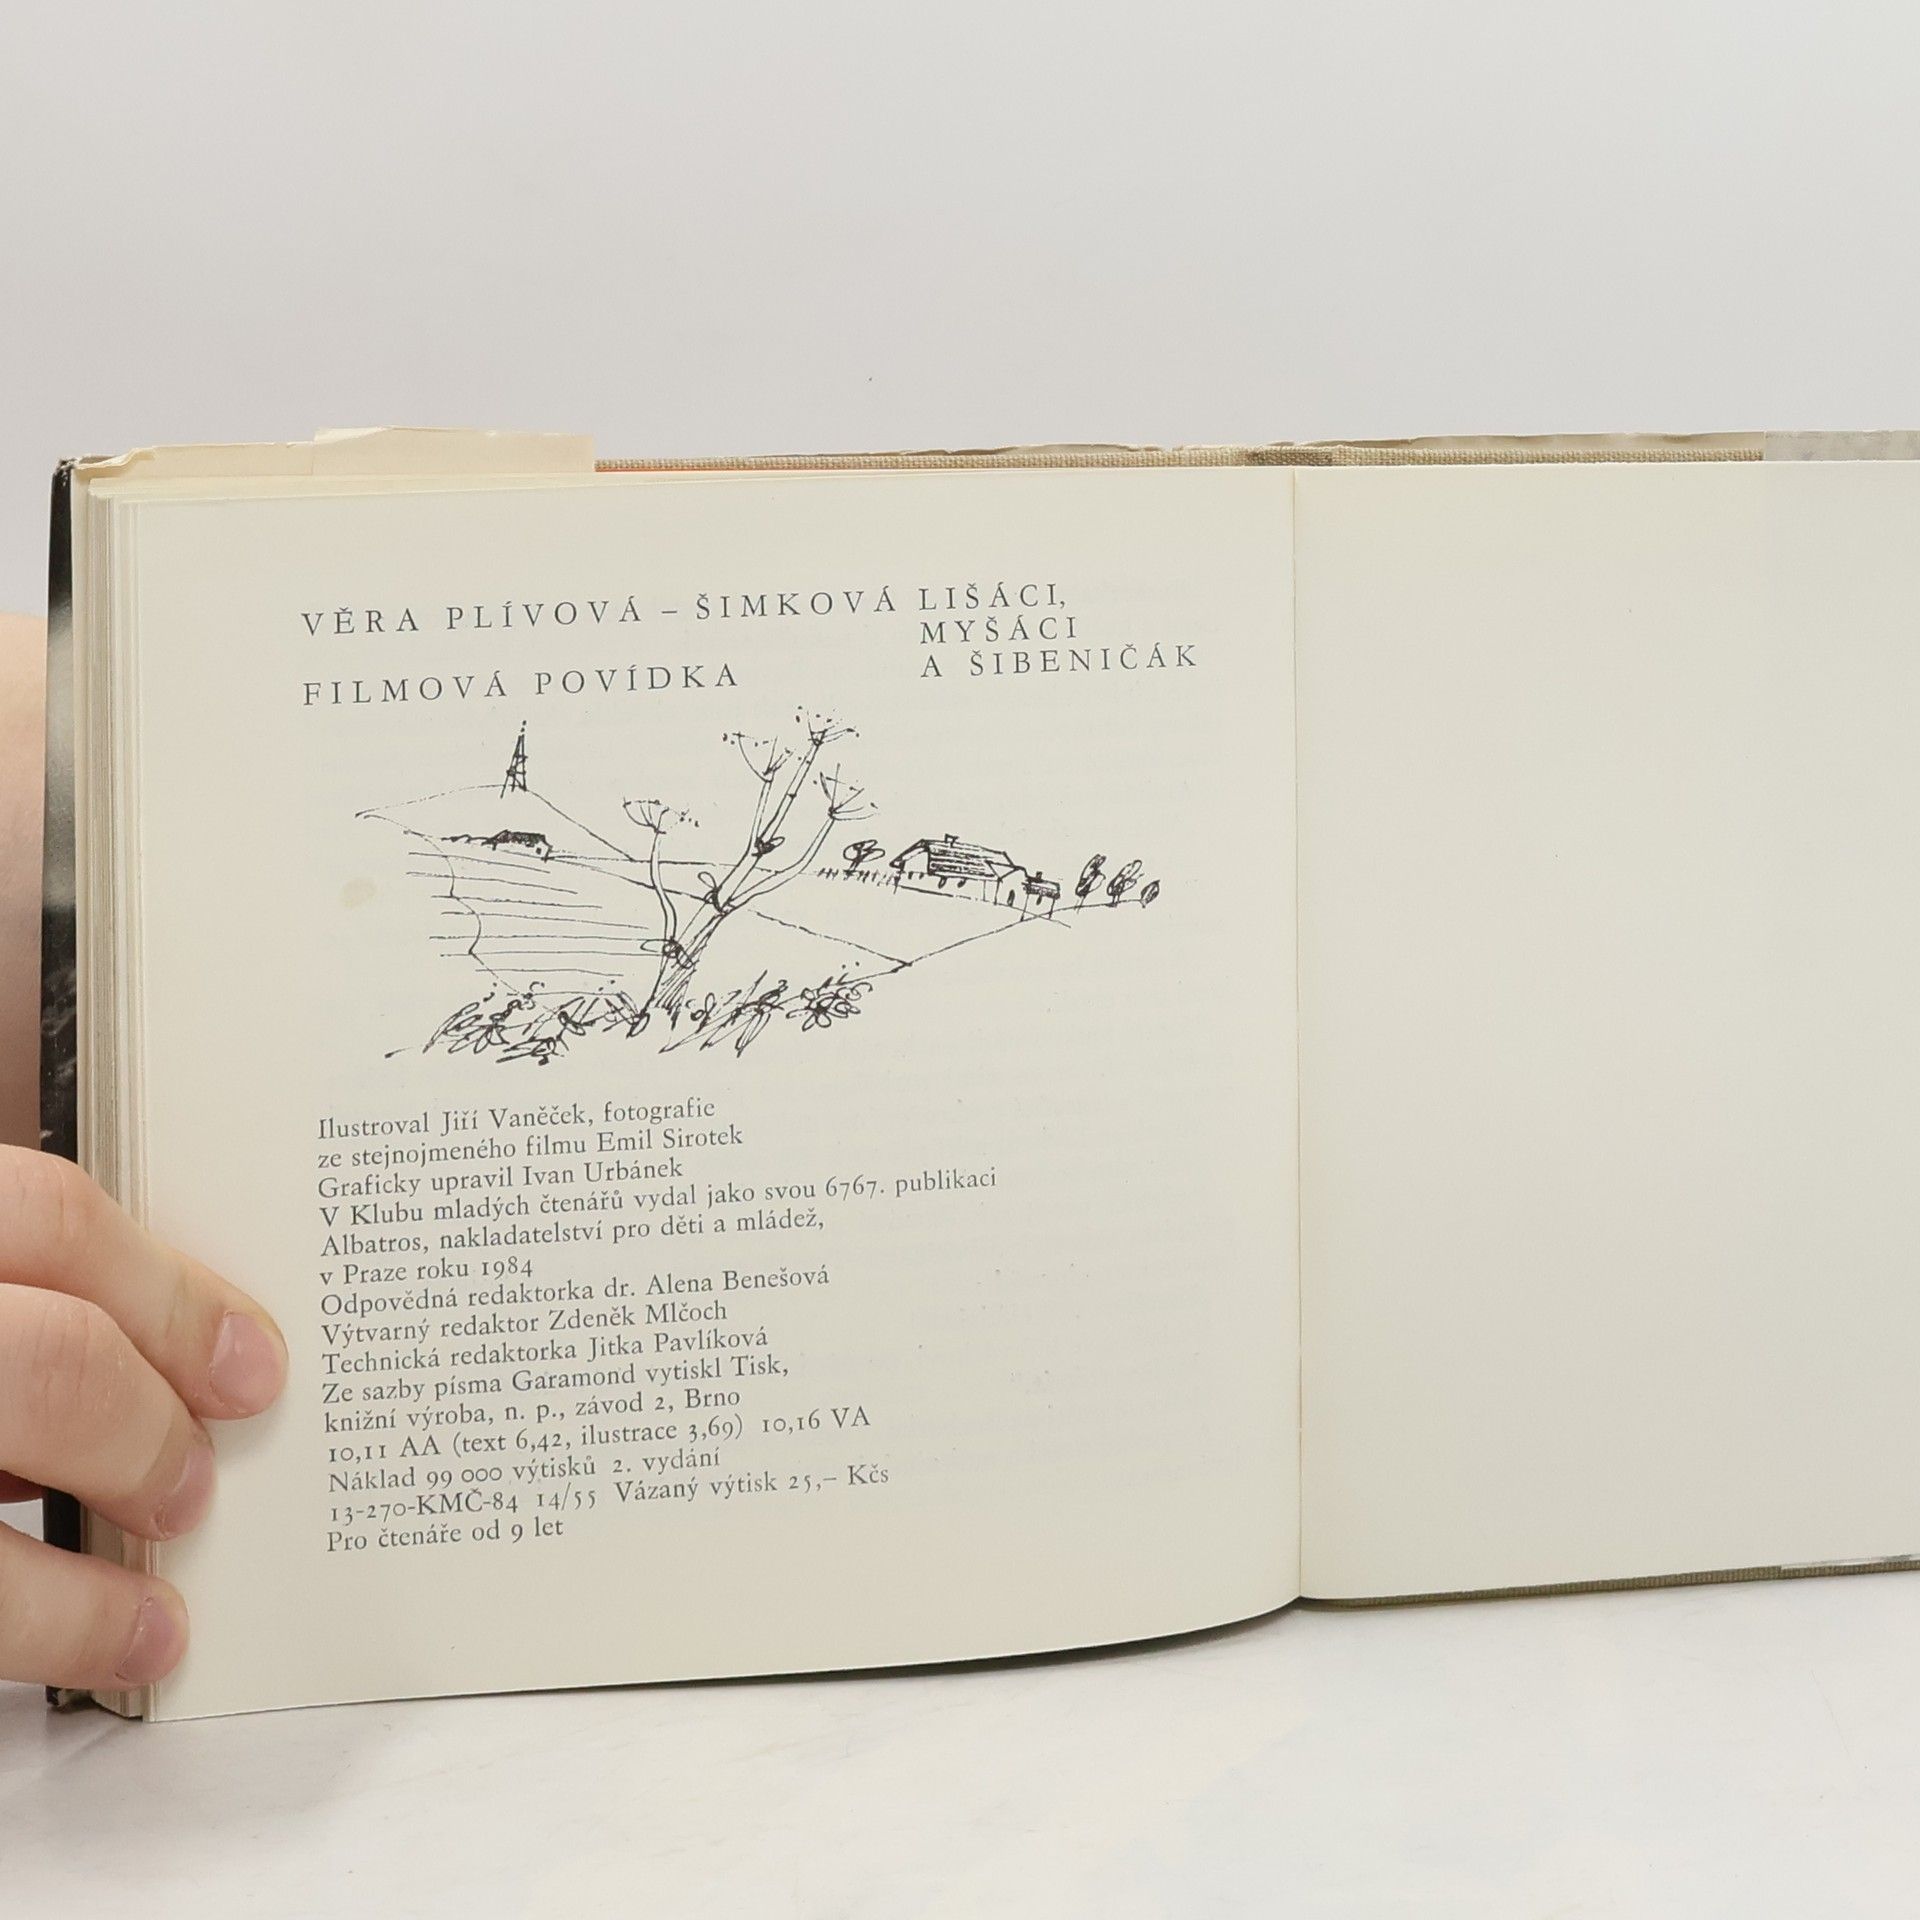 VĚRA PLÍVOVÁ – ŠIMKOVÁ
FILMOVÁ POVÍDKA
LIŠÁCI,
MYŠÁCI
A ŠIBENIČÁK
Ilustroval Jiří Vaněček, fotografie
ze stejnojmeného filmu Emil Sirotek
Graficky upravil Ivan Urbánek
V Klubu mladých čtenářů vydal jako svou 6767. publikaci
Albatros, nakladatelství pro děti a mládež,
v Praze roku 1984
Odpovědná redaktorka dr. Alena Benešová
Výtvarný redaktor Zdeněk Mlčoch
Technická redaktorka Jitka Pavlíková
Ze sazby písma Garamond vytiskl Tisk,
knižní výroba, n. p., závod 2, Brno
10,11 AA (text 6,42, ilustrace 3,69) 10,16 VA
Náklad 99 000 výtisků 2. vydání
13-270-KMČ-84 14/55 Vázaný výtisk 25,– Kčs
Pro čtenáře od 9 let